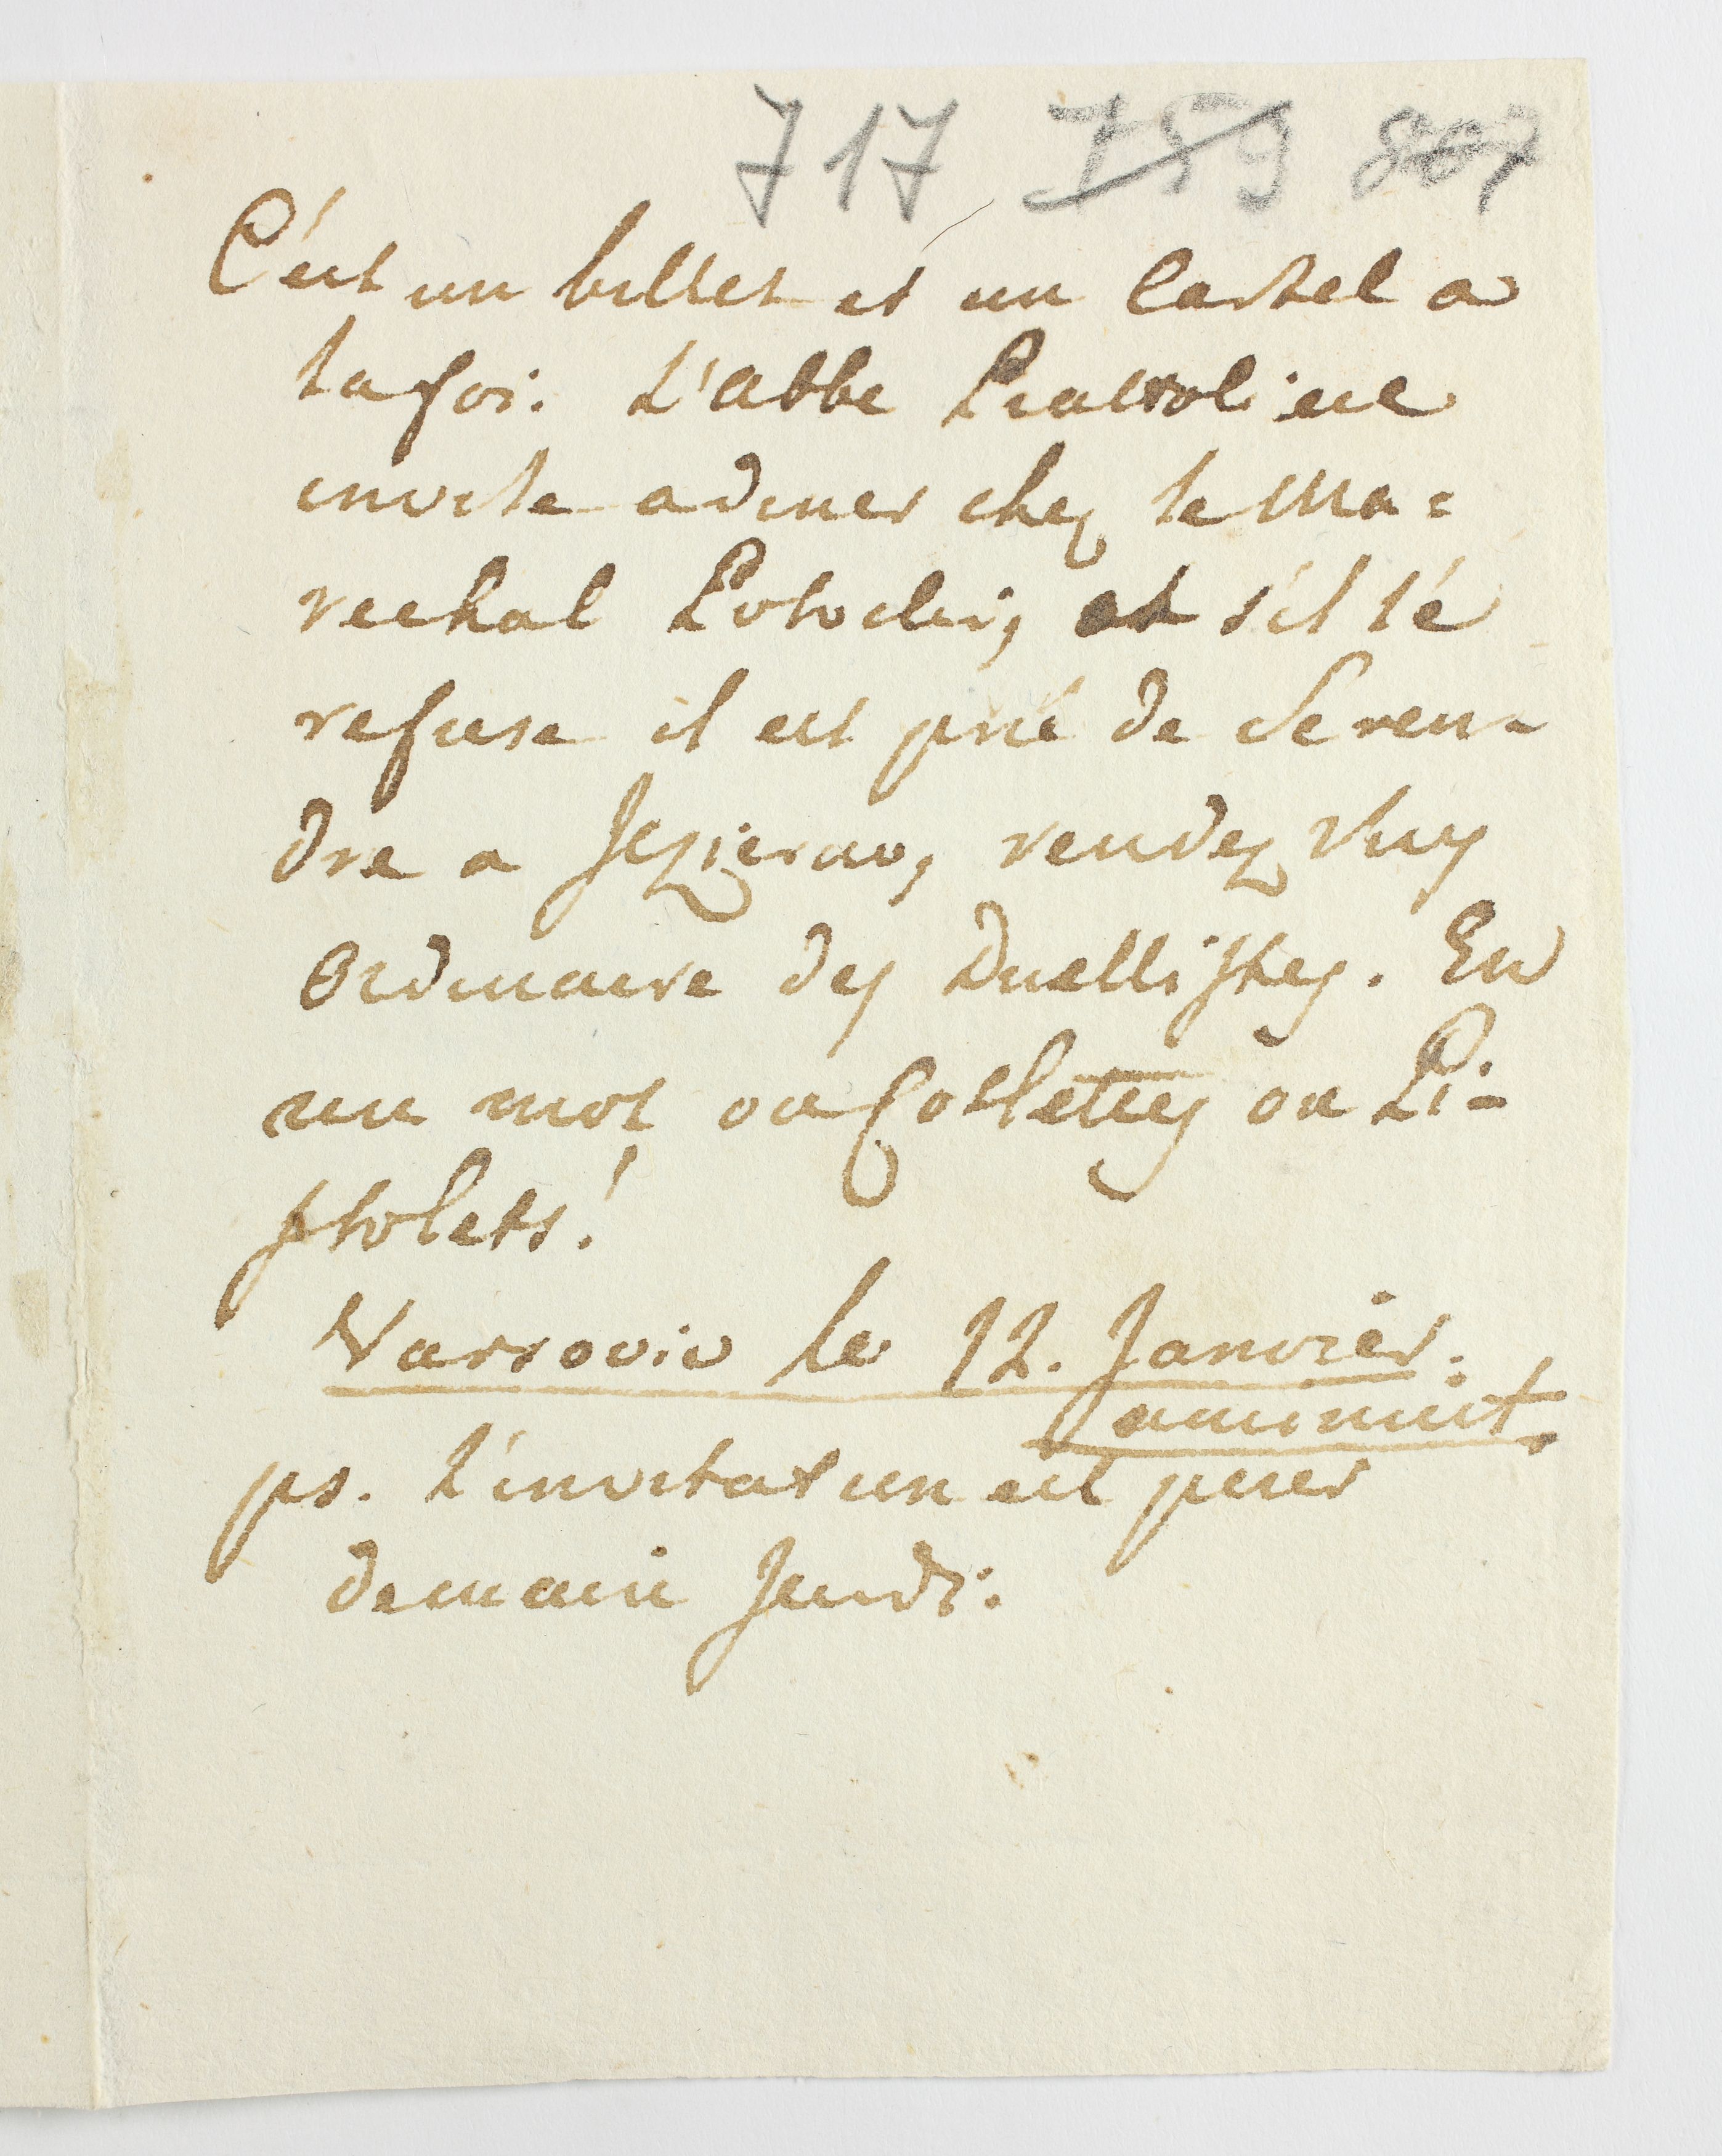 717 759 807
C'est un billet et un Cartel a
la foi. L'abbe Piattoli est
invite a diner chez le Ma=
rechal Potocki, et s'il le
refuse il est prié de se ren-
dre a Jezierno, rendez vuy
Ordinaire des Duellistes. En
un mot ou Cotlettes ou Pi-
stolets!
Varsovie le 12. Janvier.
a minuit.
ps. L'invitation est pour
demain Jeudi.